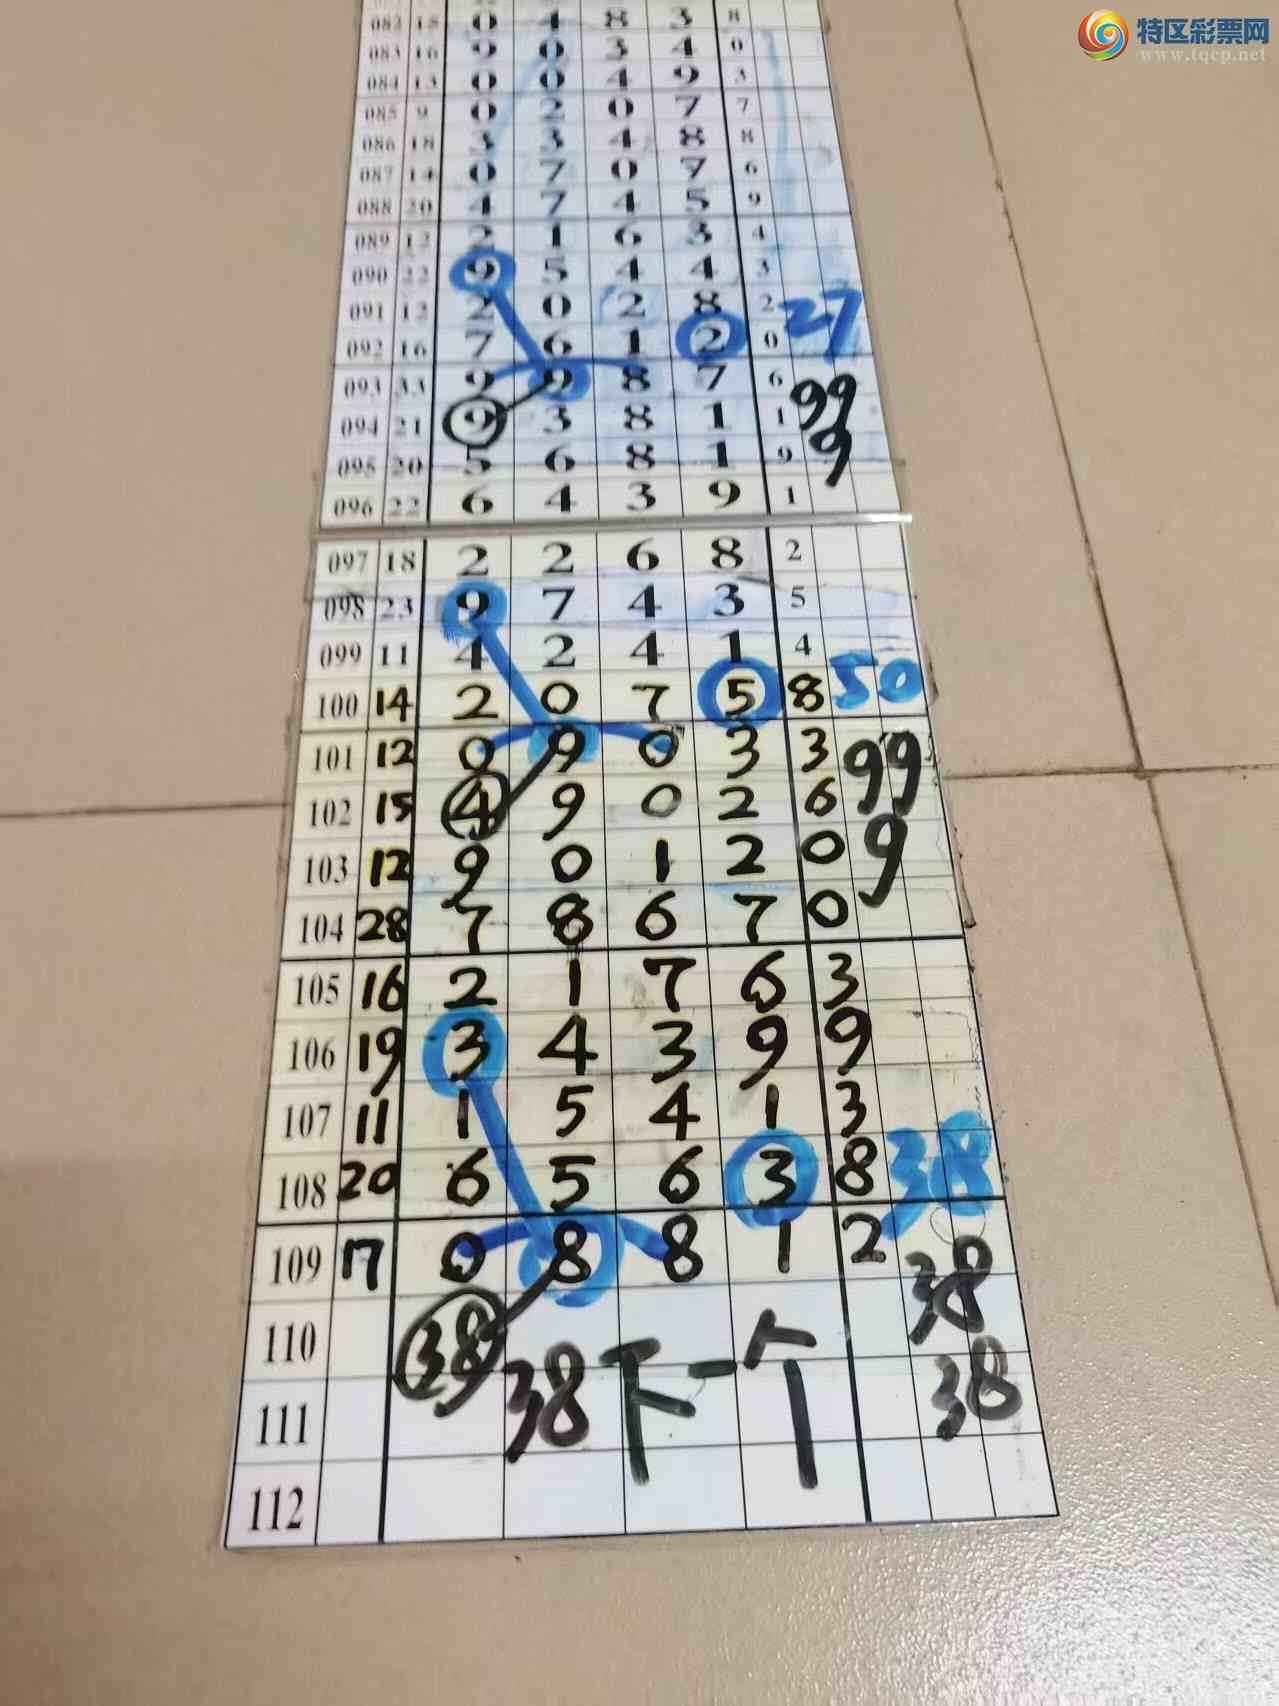 特区彩票网
www.tqcp.net
082 15 0 4 8 3 8
083 16 9 0 3 4 0
084 13 0 0 4 9 3
085 9 0 2 0 7 7
086 18 3 3 4 8 8
087 14 0 7 0 7 6
088 20 4 7 4 5 9
089 12 2 1 6 3 4
090 22 9 5 4 4 3
091 12 2 0 2 8 2 27
092 16 7 6 1 2 0
093 33 9 9 8 7 6 99
094 21 9 3 8 1 1 9
095 20 5 6 8 1 9
096 22 6 4 3 9 1
097 18 2 2 6 8 2
098 23 9 7 4 3 5
099 11 4 2 4 1 4
100 14 2 0 7 5 8 50
101 12 0 9 0 3 3 99
102 15 4 9 0 2 6
103 12 9 0 1 2 0 9
104 28 7 8 6 7 0
105 16 2 1 7 6 3
106 19 3 4 3 9 9
107 11 1 5 4 1 3
108 20 6 5 6 3 8 38
109 17 0 8 8 1 2 38
110 38
111 38下一个 38
112